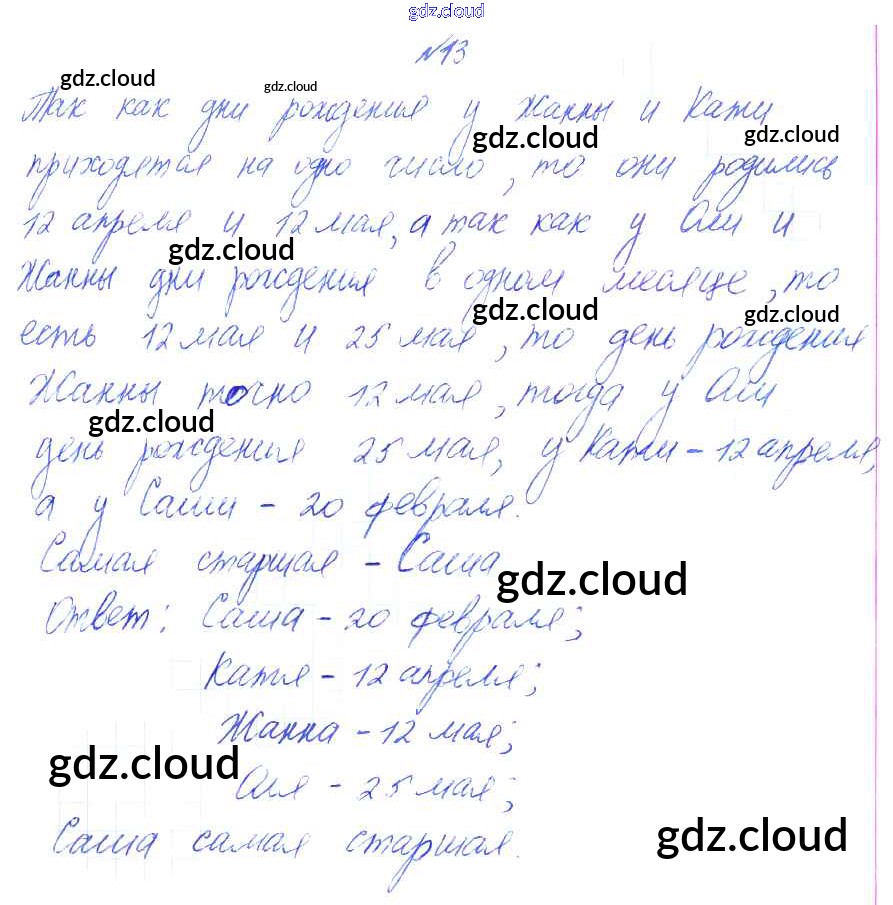 gdz.cloud
№13
gdz.cloud gdz.cloud
Так как дни рождения у Жанны и Кати
gdz.cloud gdz.cloud
приходятся на одно число, то они родились
12 апреля и 12 мая, а так как у Оли и
gdz.cloud
Жанны дни рождения в одном месяце, то
gdz.cloud gdz.cloud
есть 12 мая и 25 мая, то день рождения
Жанны точно 12 мая, тогда у Оли
gdz.cloud
день рождения 25 мая, у Кати - 12 апреля,
а у Саши - 20 февраля.
Самая старшая - Саша
gdz.cloud
Ответ: Саша - 20 февраля;
Катя - 12 апреля;
Жанна - 12 мая;
gdz.cloud
Оля - 25 мая;
Саша самая старшая.
gdz.cloud